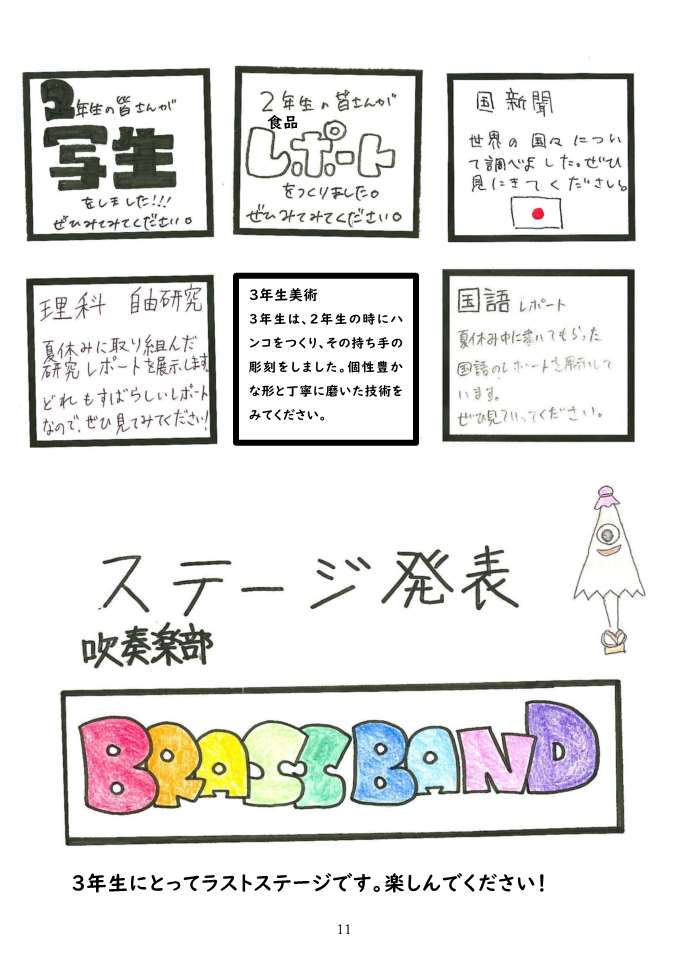 2年生の皆さんが
写生
をしました!!!
ぜひみてみてください。
2年生の皆さんが
食品
レポート
をつくりました。
ぜひみてみてください。
国新聞
世界の国々につい
て調べました。ぜひ
見にきてください。
理科 自由研究
夏休みに取り組んだ
研究レポートを展示します。
どれもすばらしいレポート
なので、ぜひ見てみてください!
3年生美術
3年生は、2年生の時にハ
ンコをつくり、その持ち手の
彫刻をしました。個性豊か
な形と丁寧に磨いた技術を
みてください。
国語 レポート
夏休み中に書いてもらった
国語のレポートを展示して
います。
ぜひ見ていってください。
ステージ発表
吹奏楽部
BRASS BAND
3年生にとってラストステージです。楽しんでください!
11